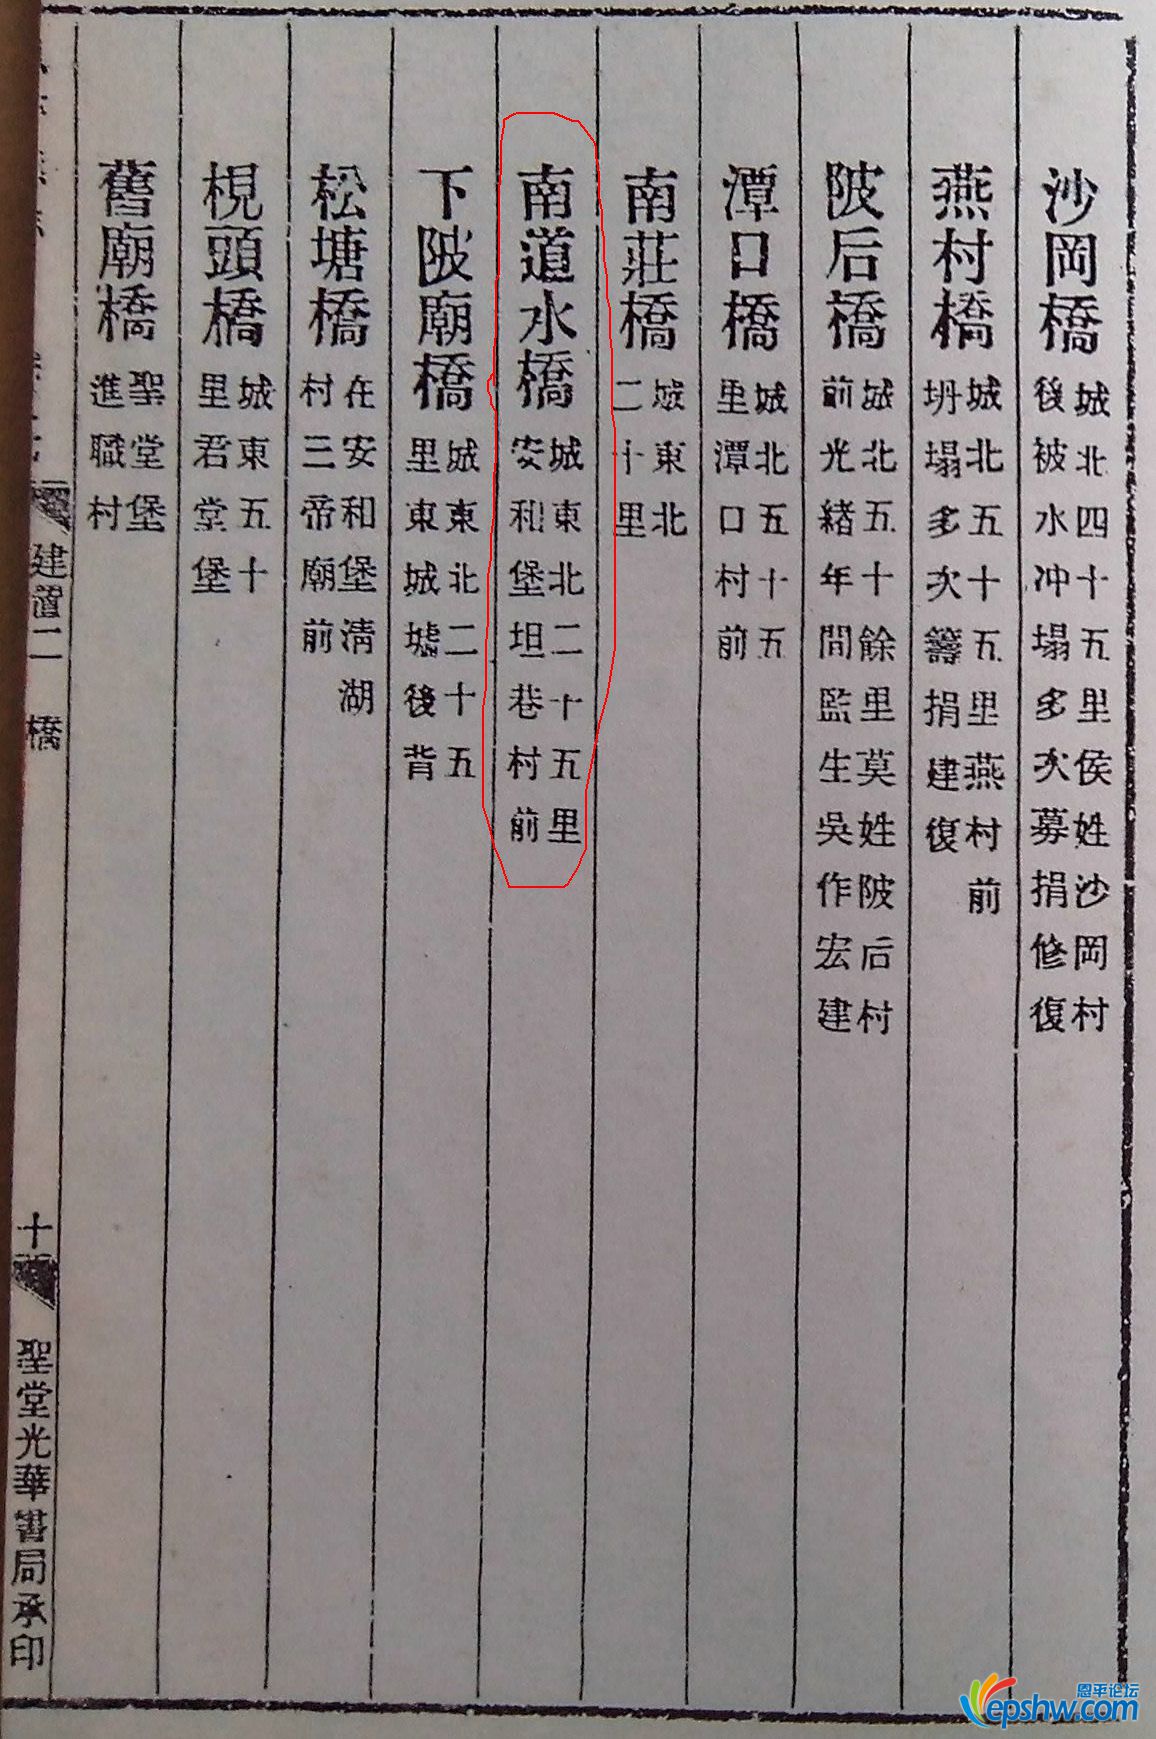 沙岡橋 城北四十五里侯姓沙岡村
後被水冲塌多次募捐修復
燕村橋 城北五十五里燕村前
坍塌多次籌捐建復
陂后橋 城北五十餘里莫姓陂后村
前光緒年間監生吳作宏建
潭口橋 城北五十五
里潭口村前
南莊橋 城東北
二十里
南道水橋 城東北二十五里
安和堡坦巷村前
下陂廟橋 城東北二十五
里東城墟後背
松塘橋 在安和堡清湖
村三帝廟前
梘頭橋 城東五十
里君堂堡
舊廟橋 聖堂堡
進職村
建置二 橋
十
聖堂光華書局承印
恩平论坛
epshw.com